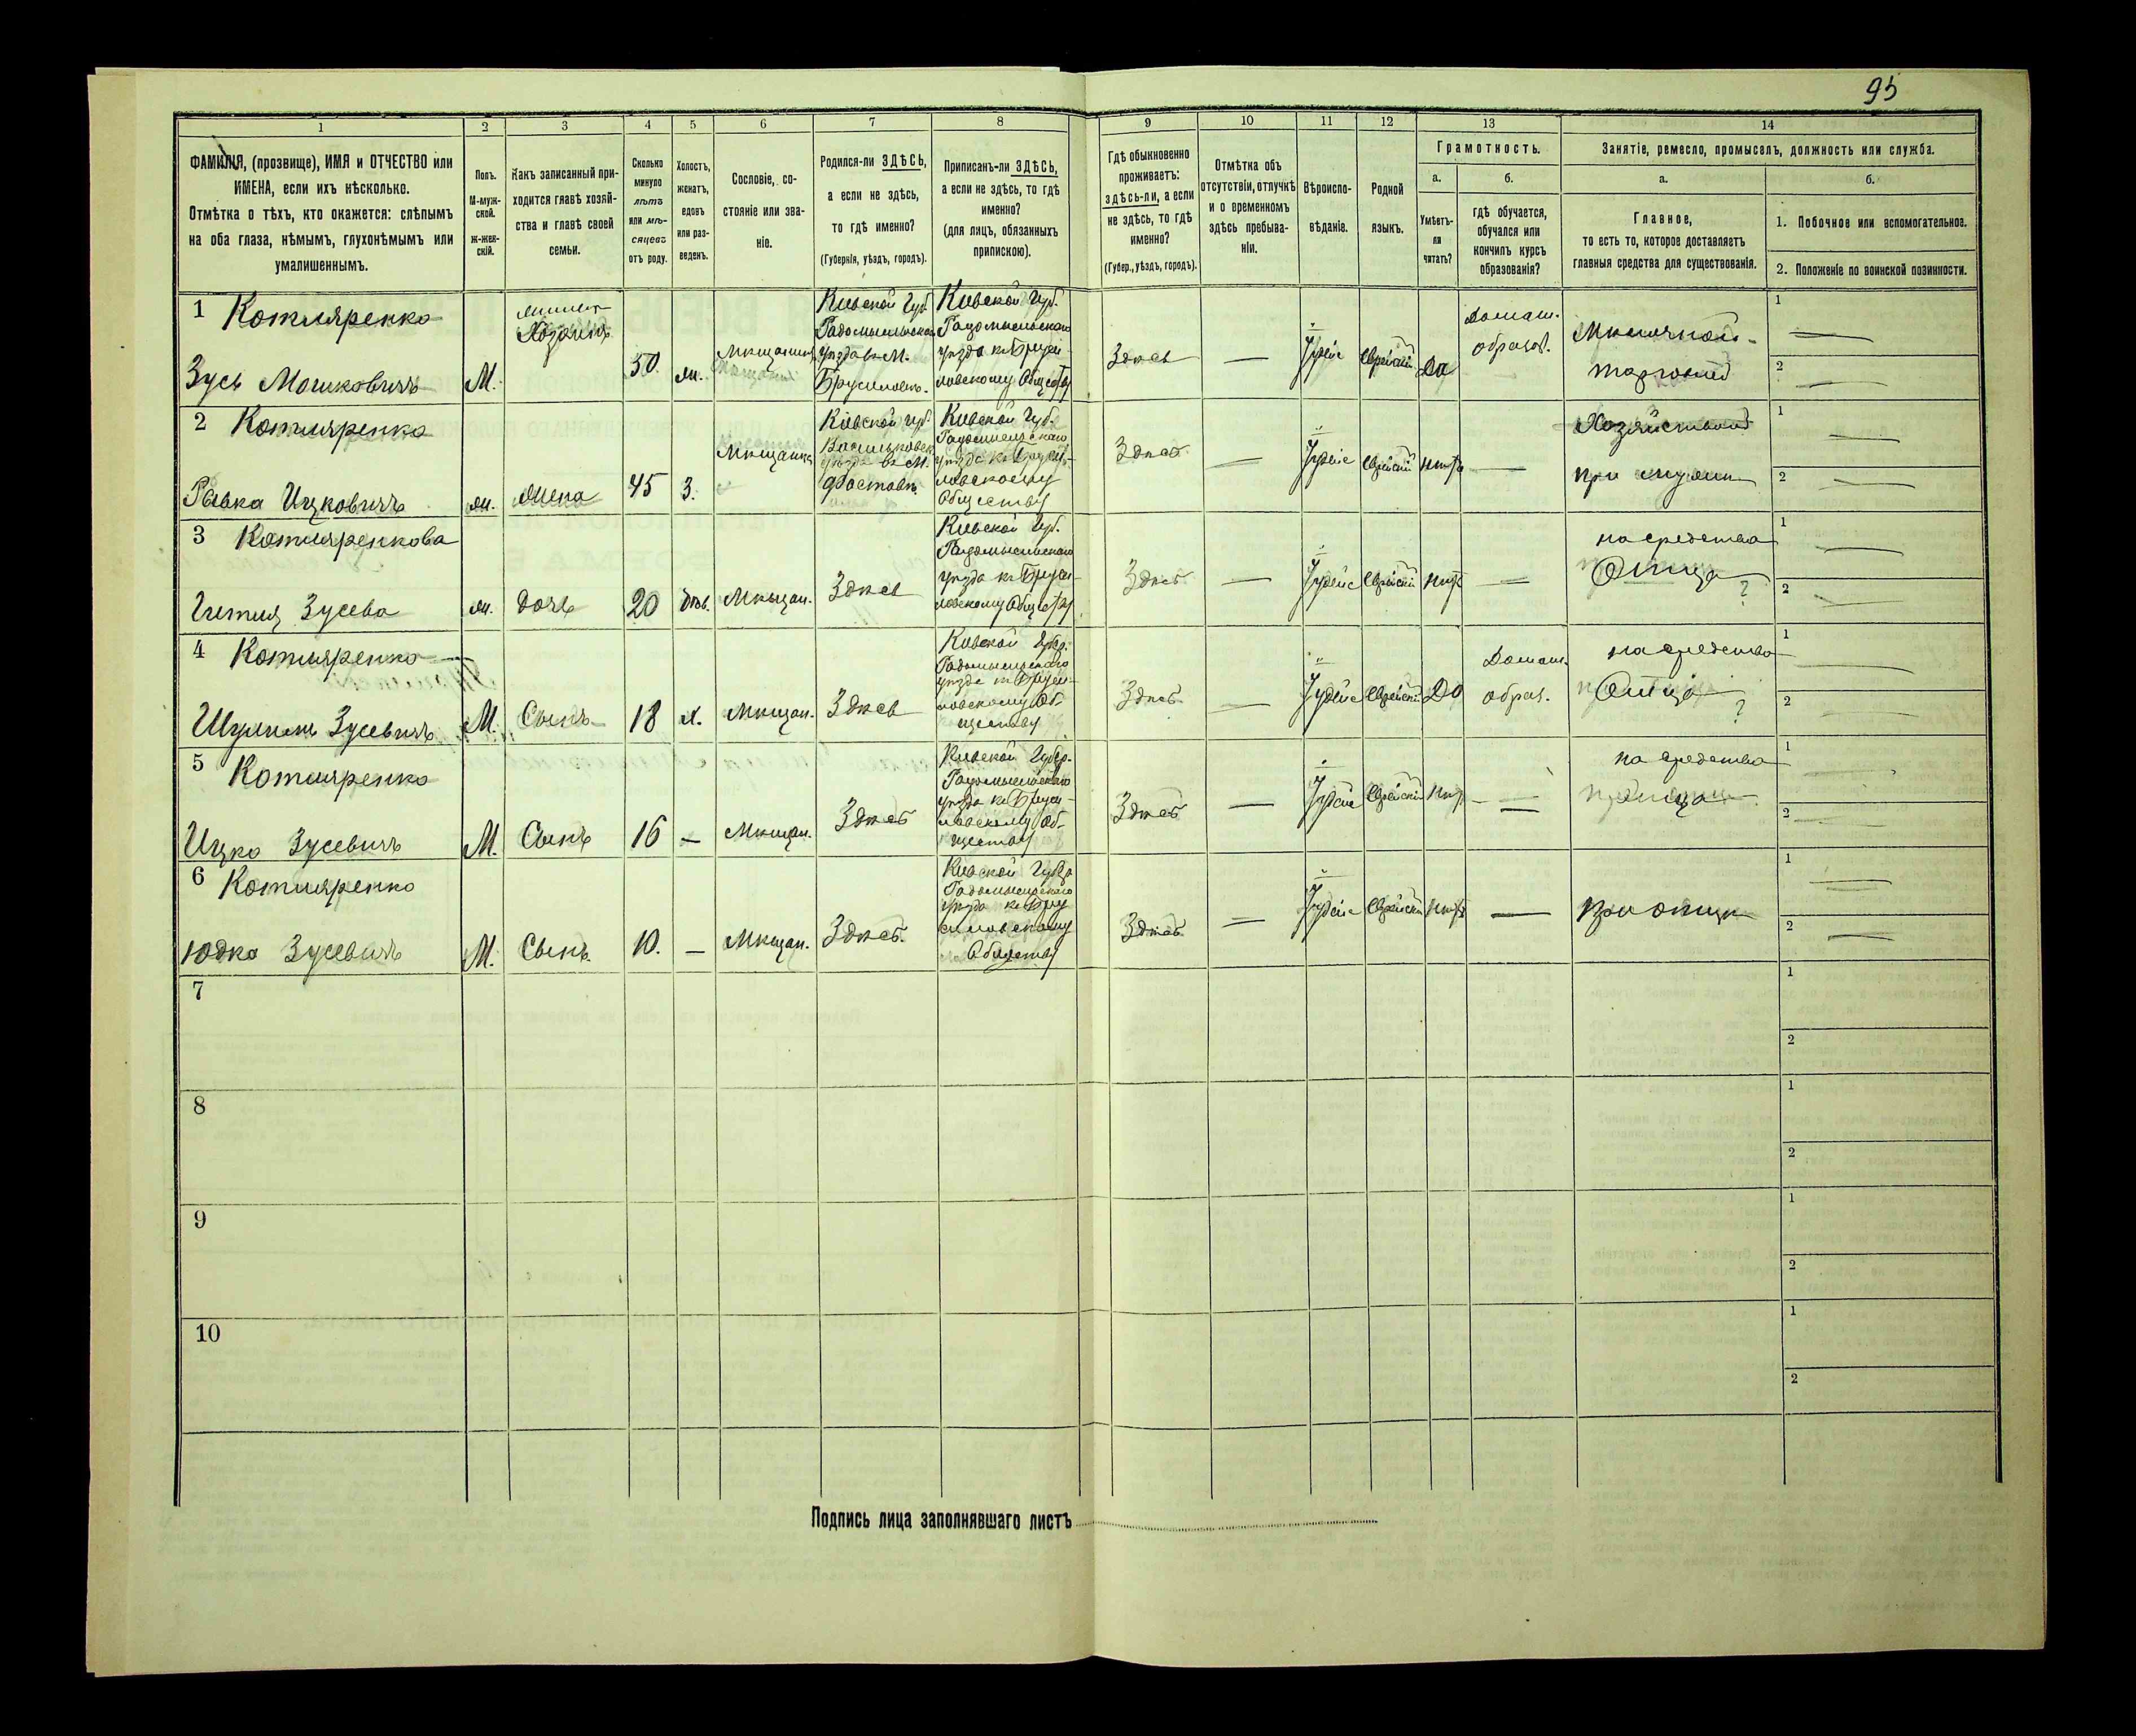 95
1 2 3 4 5 6 7 8 9 10 11 12 13 14
ФАМИЛІЯ, (прозвище), ИМЯ и ОТЧЕСТВО или
ИМЕНА, если ихъ нѣсколько.
Отмѣтка о тѣхъ, кто окажется: слѣпымъ
на оба глаза, нѣмымъ, глухонѣмымъ или
умалишеннымъ.
Полъ.
М-муж-
ской.
ж-жен-
скій.
Какъ записанный при-
ходится главѣ хозяй-
ства и главѣ своей
семьи.
Сколько
минуло
лѣтъ
или мѣ-
сяцевъ
отъ роду.
Холостъ,
женатъ,
вдовъ
или раз-
веденъ.
Сословіе, со-
стояніе или зва-
ніе.
Родился-ли ЗДѢСЬ,
а если не здѣсь,
то гдѣ именно?
(Губернія, уѣздъ, городъ).
Приписанъ-ли ЗДѢСЬ,
а если не здѣсь, то гдѣ
именно?
(для лицъ, обязанныхъ
припискою).
Гдѣ обыкновенно
проживаетъ:
здѣсь-ли, а если
не здѣсь, то гдѣ
именно?
(Губер., уѣздъ, городъ).
Отмѣтка объ
отсутствіи, отлучкѣ
и о временномъ
здѣсь пребыва-
ніи.
Вѣроиспо-
вѣданіе.
Родной
языкъ.
Грамотность.
а.
Умѣетъ-
ли
читать?
б.
гдѣ обучается,
обучался или
кончилъ курсъ
образованія?
Занятіе, ремесло, промыселъ, должность или служба.
а.
Главное,
то есть то, которое доставляетъ
главныя средства для существованія.
б.
1. Побочное или вспомогательное.
2. Положеніе по воинской повинности.
1 Котляренко
Зусь Мошковичъ
М.
Хозяинъ
50.
ж.
Мѣщанинъ
Кіевской Губ.
Радомысльскаго
уѣзда въ М.
Брусиловѣ.
Кіевской Губ.
Радомысльскаго
уѣзда къ Бруси-
ловскому Обществу
Здѣсь
—
Іудейс
Еврейскій
Да
Домаш.
образов.
Мѣлочной
торговлей
1 —
2 —
2 Котляренко
Рывка Ицковичъ
ж.
Жена
45
З.
Мѣщанка
Кіевской губ.
Васильковск.
уѣзда въ М.
Фастовѣ
Кіевской Губ.
Радомысльскаго
уѣзда къ Бруси-
ловскому
Обществу
Здѣсь
—
Іудейс
Еврейскій
нѣтъ
—
Хозяйством
при мужѣ
1 —
2 —
3 Котляренкова
Зусева
ж.
дочь
20
дѣв.
Мѣщан.
Здѣсь
Кіевской Губ.
Радомысльскаго
уѣзда къ Бруси-
ловскому Обществу
Здѣсь
—
Іудейс
Еврейскій
нѣтъ
—
на средства
Отца
?
1 —
2 —
4 Котляренко
Шулимъ Зусевичъ
М.
Сынъ
18
х.
Мѣщан.
Здѣсь
Кіевской Губер.
Радомысльскаго
уѣзда къ Бруси-
ловскому Об-
ществу
Здѣсь
—
Іудейс
Еврейскій
Да
Домаш.
образ.
на средства
Отца
?
1 —
2 —
5 Котляренко
Ицко Зусевичъ
М.
Сынъ
16
—
Мѣщан.
Здѣсь
Кіевской Губер.
Радомысльскаго
уѣзда къ Бруси-
ловскому Об-
ществу
Здѣсь
—
Іудейс
Еврейскій
нѣтъ
—
на средства
отца
1
2 —
6 Котляренко
Юдко Зусевичъ
М.
Сынъ.
10.
—
Мѣщан.
Здѣсь.
Кіевской Губер
Радомысльскаго
уѣзда къ Бру
силовскому
Обществу
Здѣсь
—
Іудейс
Еврейскій
нѣтъ
—
при отцѣ
1 —
2 —
7
1
2
8
1
2
9
1
2
10
1
2
Подпись лица заполнявшаго листъ